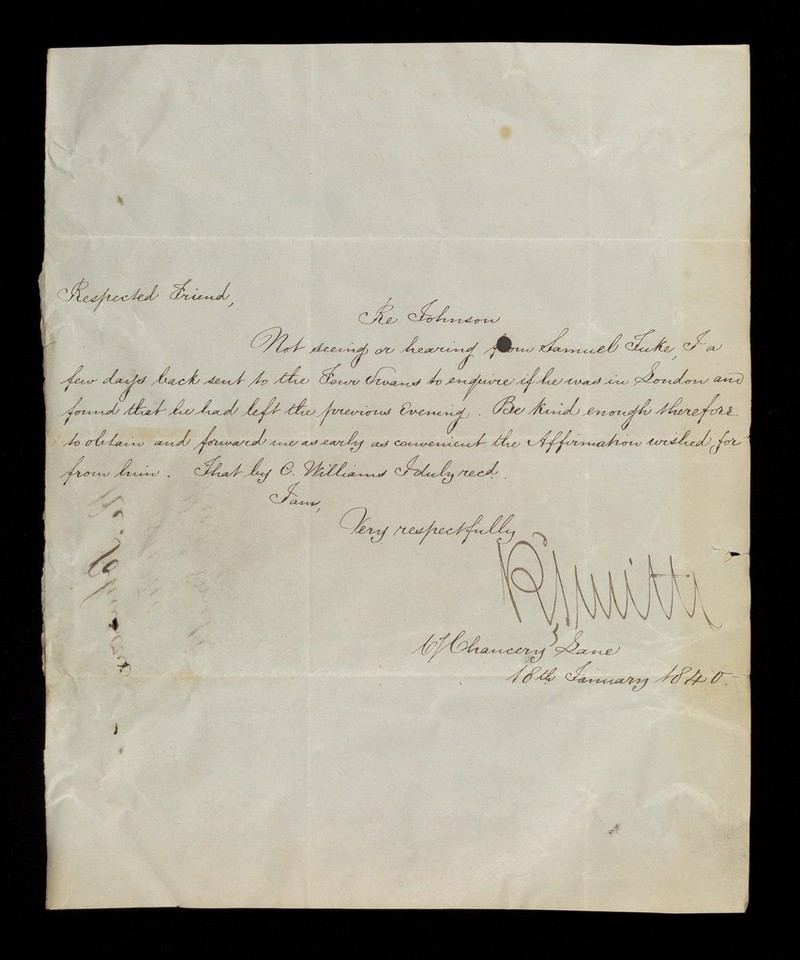 Respected Friend,
Re Johnson
Not seeing or hearing from Samuel Tuke, I a
few days back sent to the Four Swans to enquire if he was in London and
found that he had left the previous Evening. Be kind enough therefore
to obtain and forward me as early as convenient the Affirmation wished for
from him. That by C. Williams I duly recd.
I am,
Very respectfully
Chancery Lane
18th January 1840.